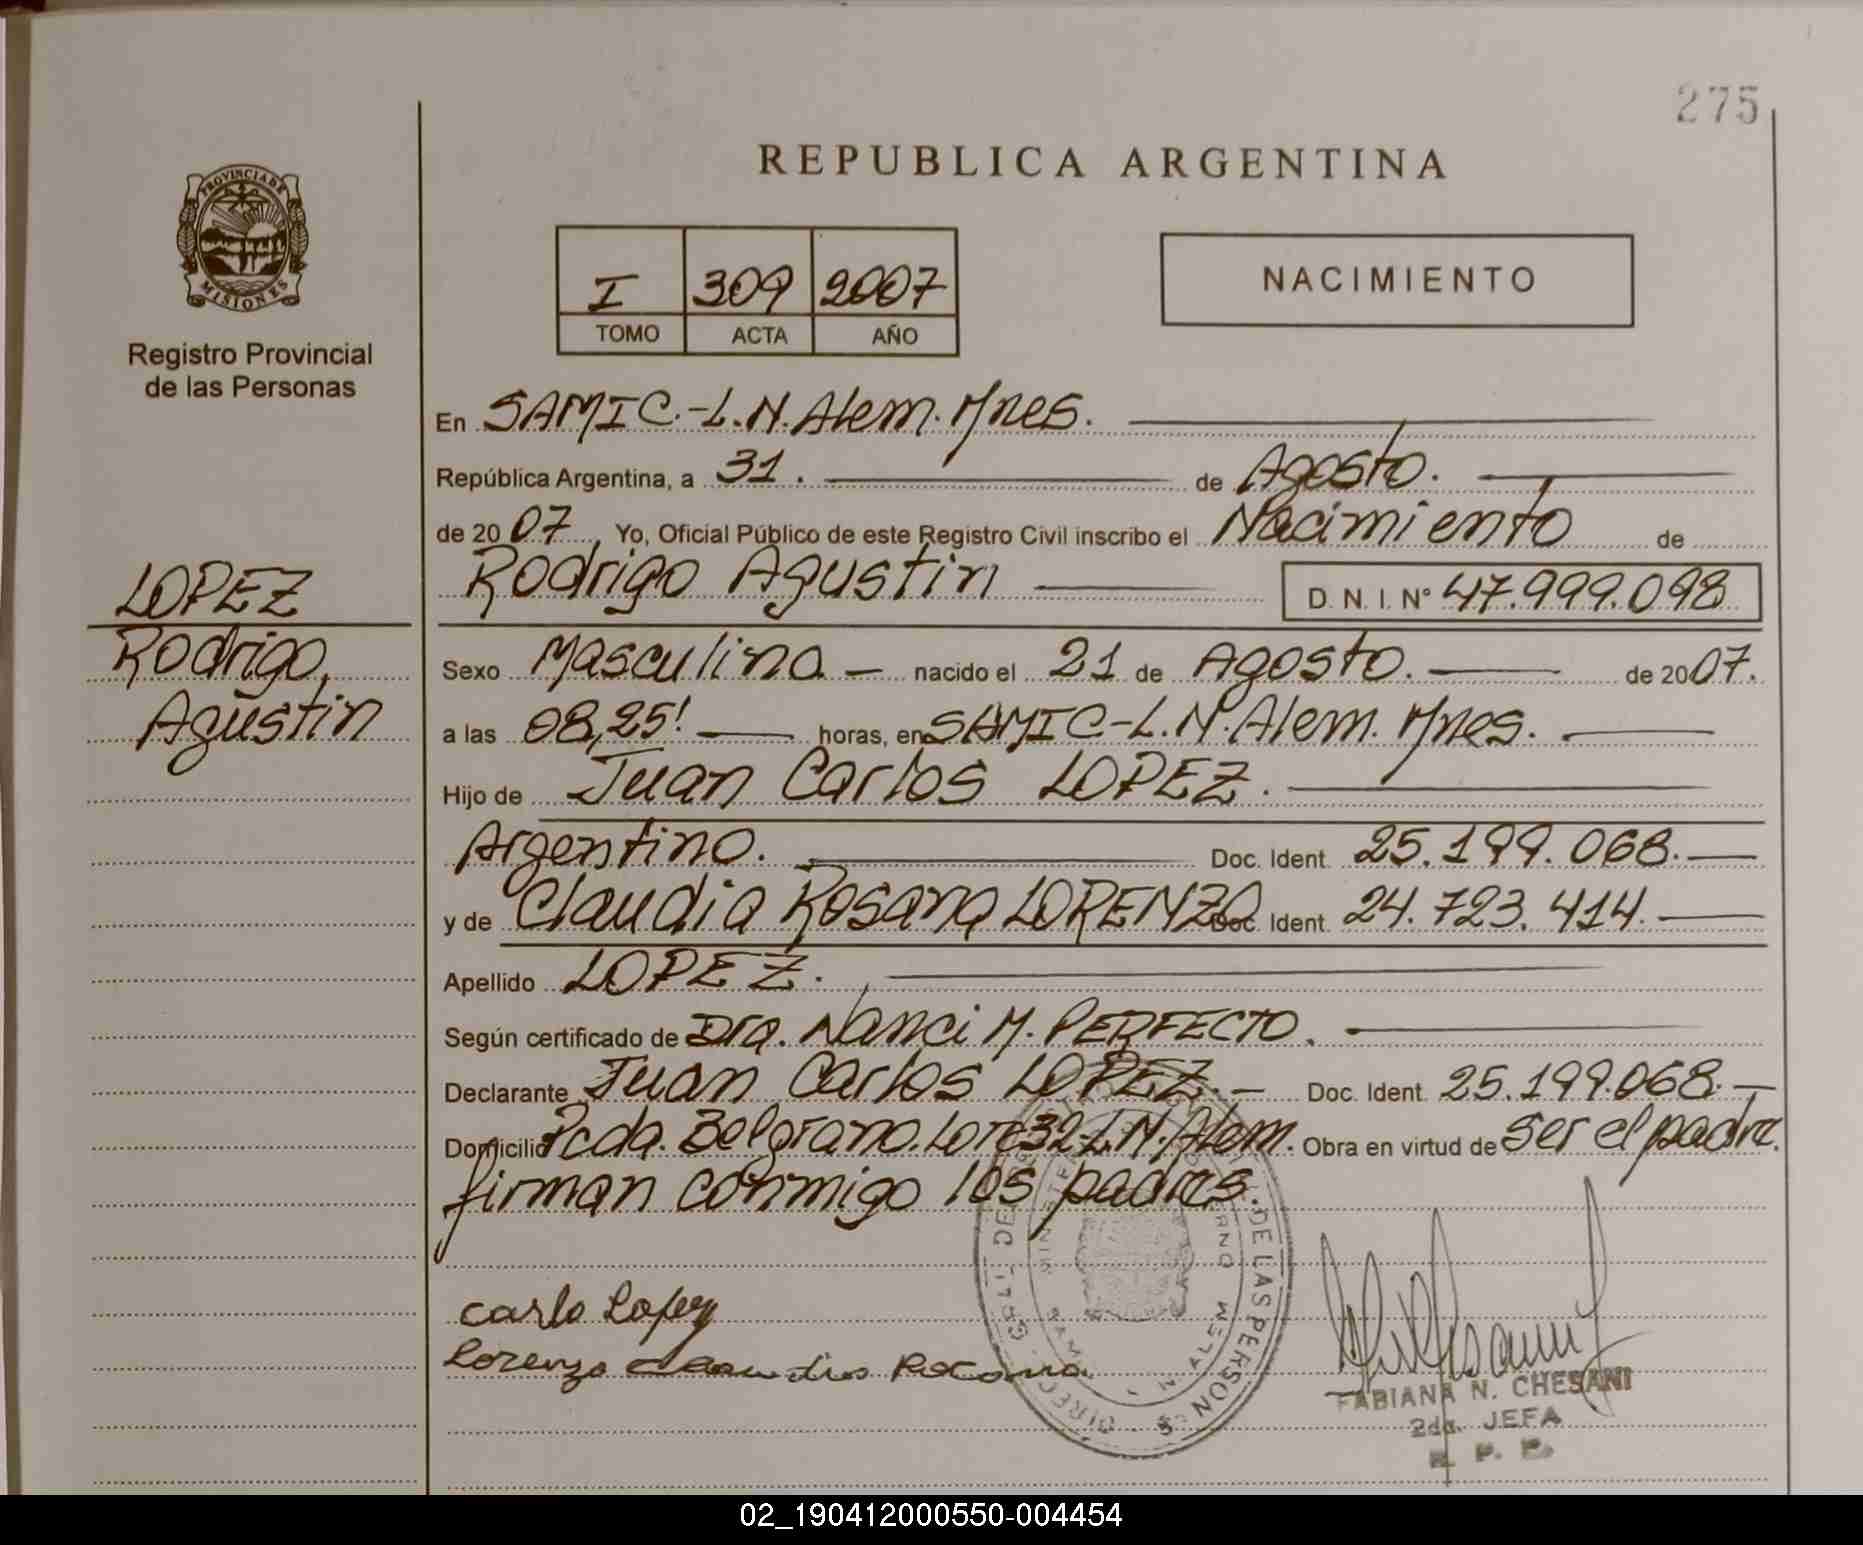 275
REPUBLICA ARGENTINA
PROVINCIA DE
MISIONES
Registro Provincial
de las Personas
I 309 2007
TOMO ACTA AÑO
NACIMIENTO
En SAMIC.-L.N.Alem.Mnes.
República Argentina, a 31. de Agosto.
de 2007, Yo, Oficial Público de este Registro Civil inscribo el Nacimiento de
Rodrigo Agustin D. N. I. N° 47.999.098
LOPEZ
Rodrigo
Agustin
Sexo Masculino nacido el 21 de Agosto. de 2007.
a las 08,25! horas, en SAMIC-L.N.Alem. Mnes.
Hijo de Juan Carlos LOPEZ.
Argentino. Doc. Ident. 25.199.068.
y de Claudia Rosana LORENZO Doc. Ident. 24.723.414.
Apellido LOPEZ.
Según certificado de Dra. Nanci M. PERFECTO.
Declarante Juan Carlos LOPEZ.- Doc. Ident. 25.199.068.
Domicilio Pcda. Belgrano. Lote 32-L.N.Alem. Obra en virtud de ser el padre.
firman conmigo los padres.
carlo Lopez
Lorenzo
FABIANA N. CHESANI
2da. JEFA
R. P. P.
02_190412000550-004454